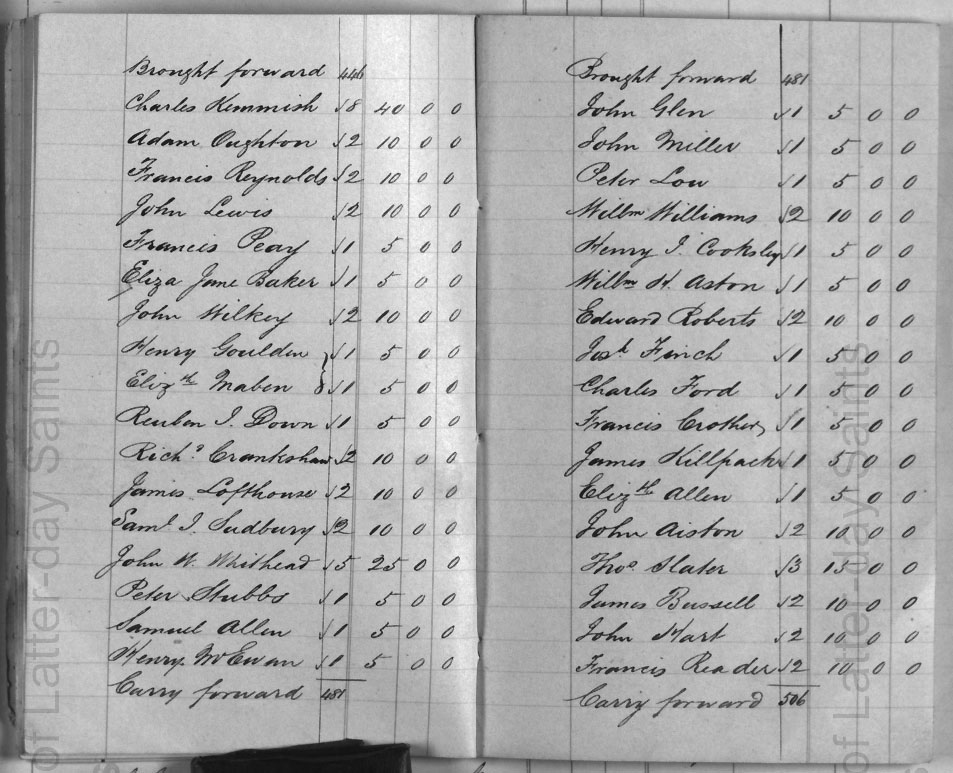 Brought forward 446
Charles Kemmish √8 40 0 0
Adam Oughton √2 10 0 0
Francis Reynolds √2 10 0 0
John Lewis √2 10 0 0
Francis Peay √1 5 0 0
Eliza Jane Baker √1 5 0 0
John Wilkey √2 10 0 0
Henry Goulden √1 5 0 0
Elizth Maben √1 5 0 0
Reuben I. Down √1 5 0 0
Richd. Crankshaw √2 10 0 0
James Lofthouse √2 10 0 0
Saml. I. Sudbury √2 10 0 0
John W. Whithead √5 25 0 0
Peter Stubbs √1 5 0 0
Samuel Allen √1 5 0 0
Henry McEwan √1 5 0 0
Carry forward 481
Brought forward 481
John Glen √1 5 0 0
John Miller √1 5 0 0
Peter Low √1 5 0 0
Willm Williams √2 10 0 0
Henry I. Cooksley √1 5 0 0
Willm H. Aston √1 5 0 0
Edward Roberts √2 10 0 0
Josh. Finch √1 5 0 0
Charles Ford √1 5 0 0
Francis Crothers √1 5 0 0
James Killpack √1 5 0 0
Elizth Allen √1 5 0 0
John Aiston √2 10 0 0
Thos. Slater √3 15 0 0
James Bussell √2 10 0 0
John Hart √2 10 0 0
Francis Reader √2 10 0 0
Carry forward 506
of Latter-day Saints
of Latter-day Saints